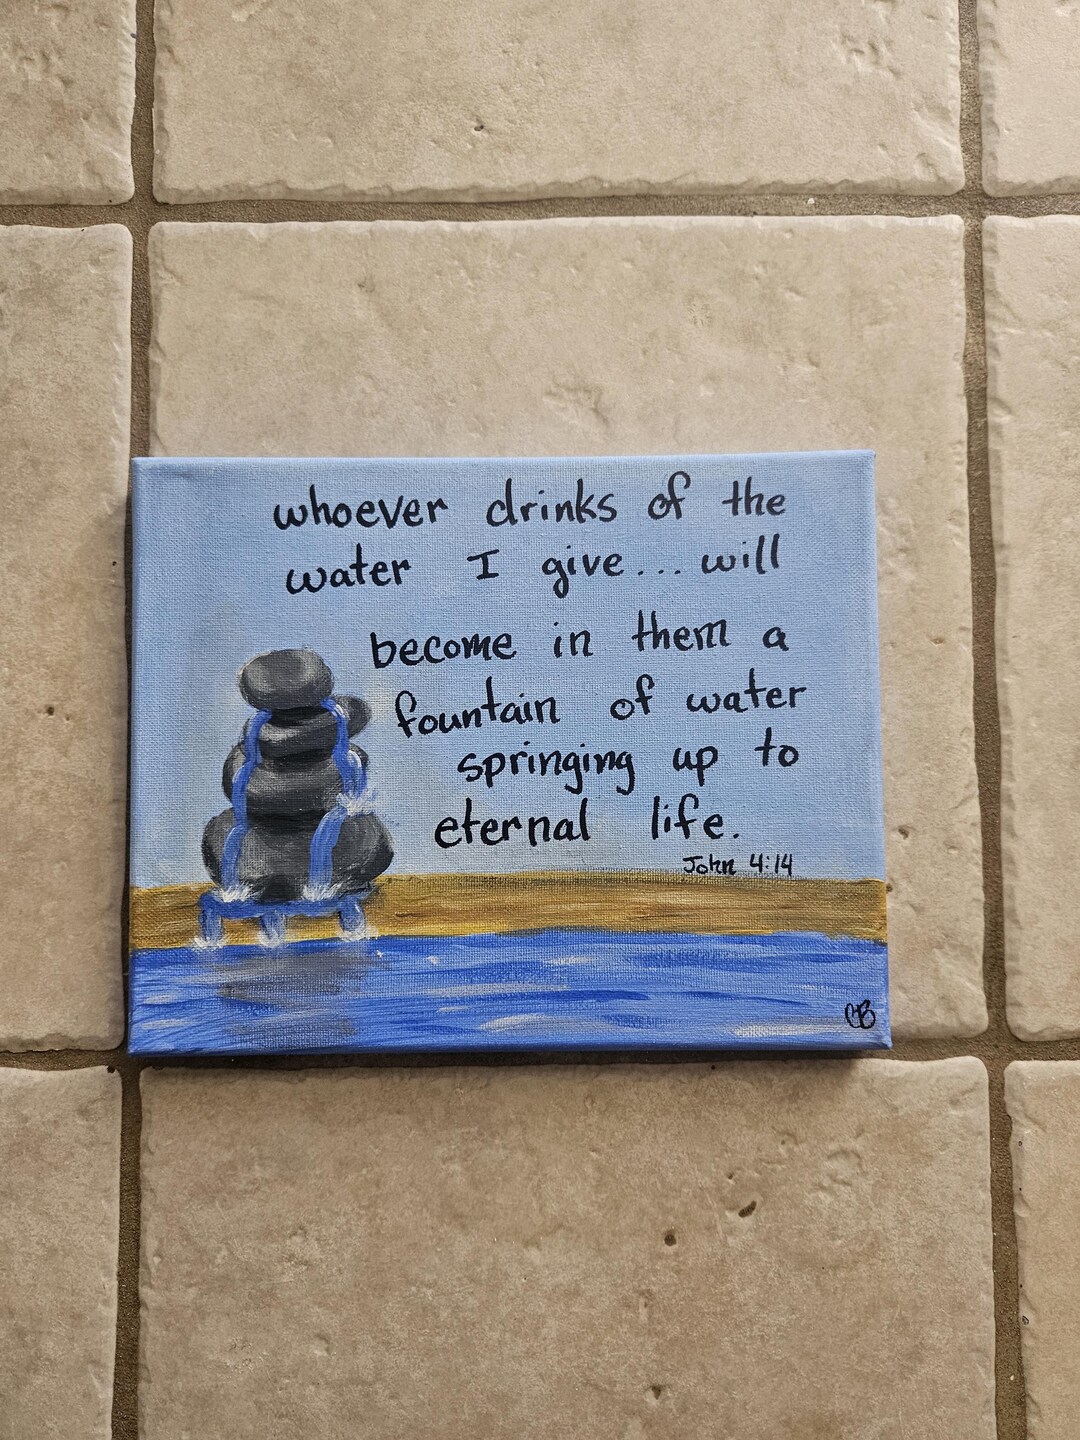 whoever drinks of the
water I give... will
become in them a
fountain of water
springing up to
eternal life.
John 4:14
CB